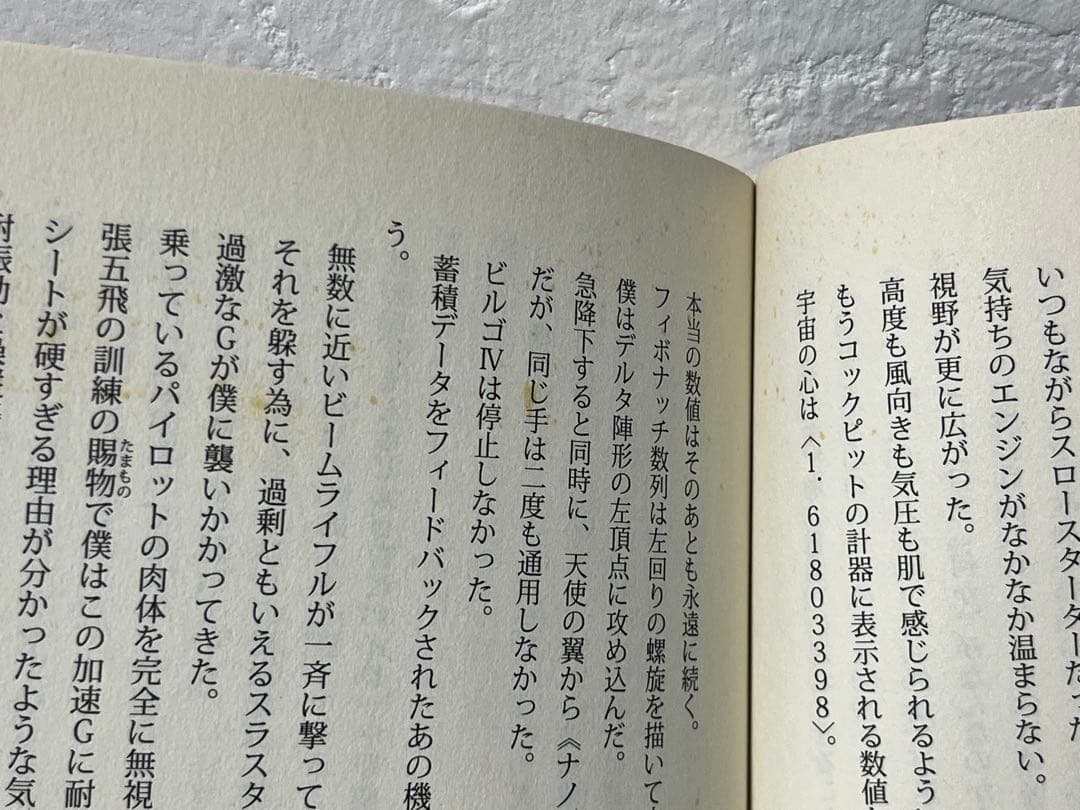 いつもながらスロースターターだった
気持ちのエンジンがなかなか温まらない。
視野が更に広がった。
高度も風向きも気圧も肌で感じられるよう
もうコックピットの計器に表示される数値
宇宙の心は〈1．61803398〉。
本当の数値はそのあとも永遠に続く。
フィボナッチ数列は左回りの螺旋を描いて
僕はデルタ陣形の左頂点に攻め込んだ。
急降下すると同時に、天使の翼から《ナノ
だが、同じ手は二度も通用しなかった。
ビルゴⅣは停止しなかった。
蓄積データをフィードバックされたあの機
う。
無数に近いビームライフルが一斉に撃って
それを躱す為に、過剰ともいえるスラスタ
過激なGが僕に襲いかかってきた。
乗っているパイロットの肉体を完全に無視
張五飛の訓練の賜物たまもので僕はこの加速Gに耐
シートが硬すぎる理由が分かったような気